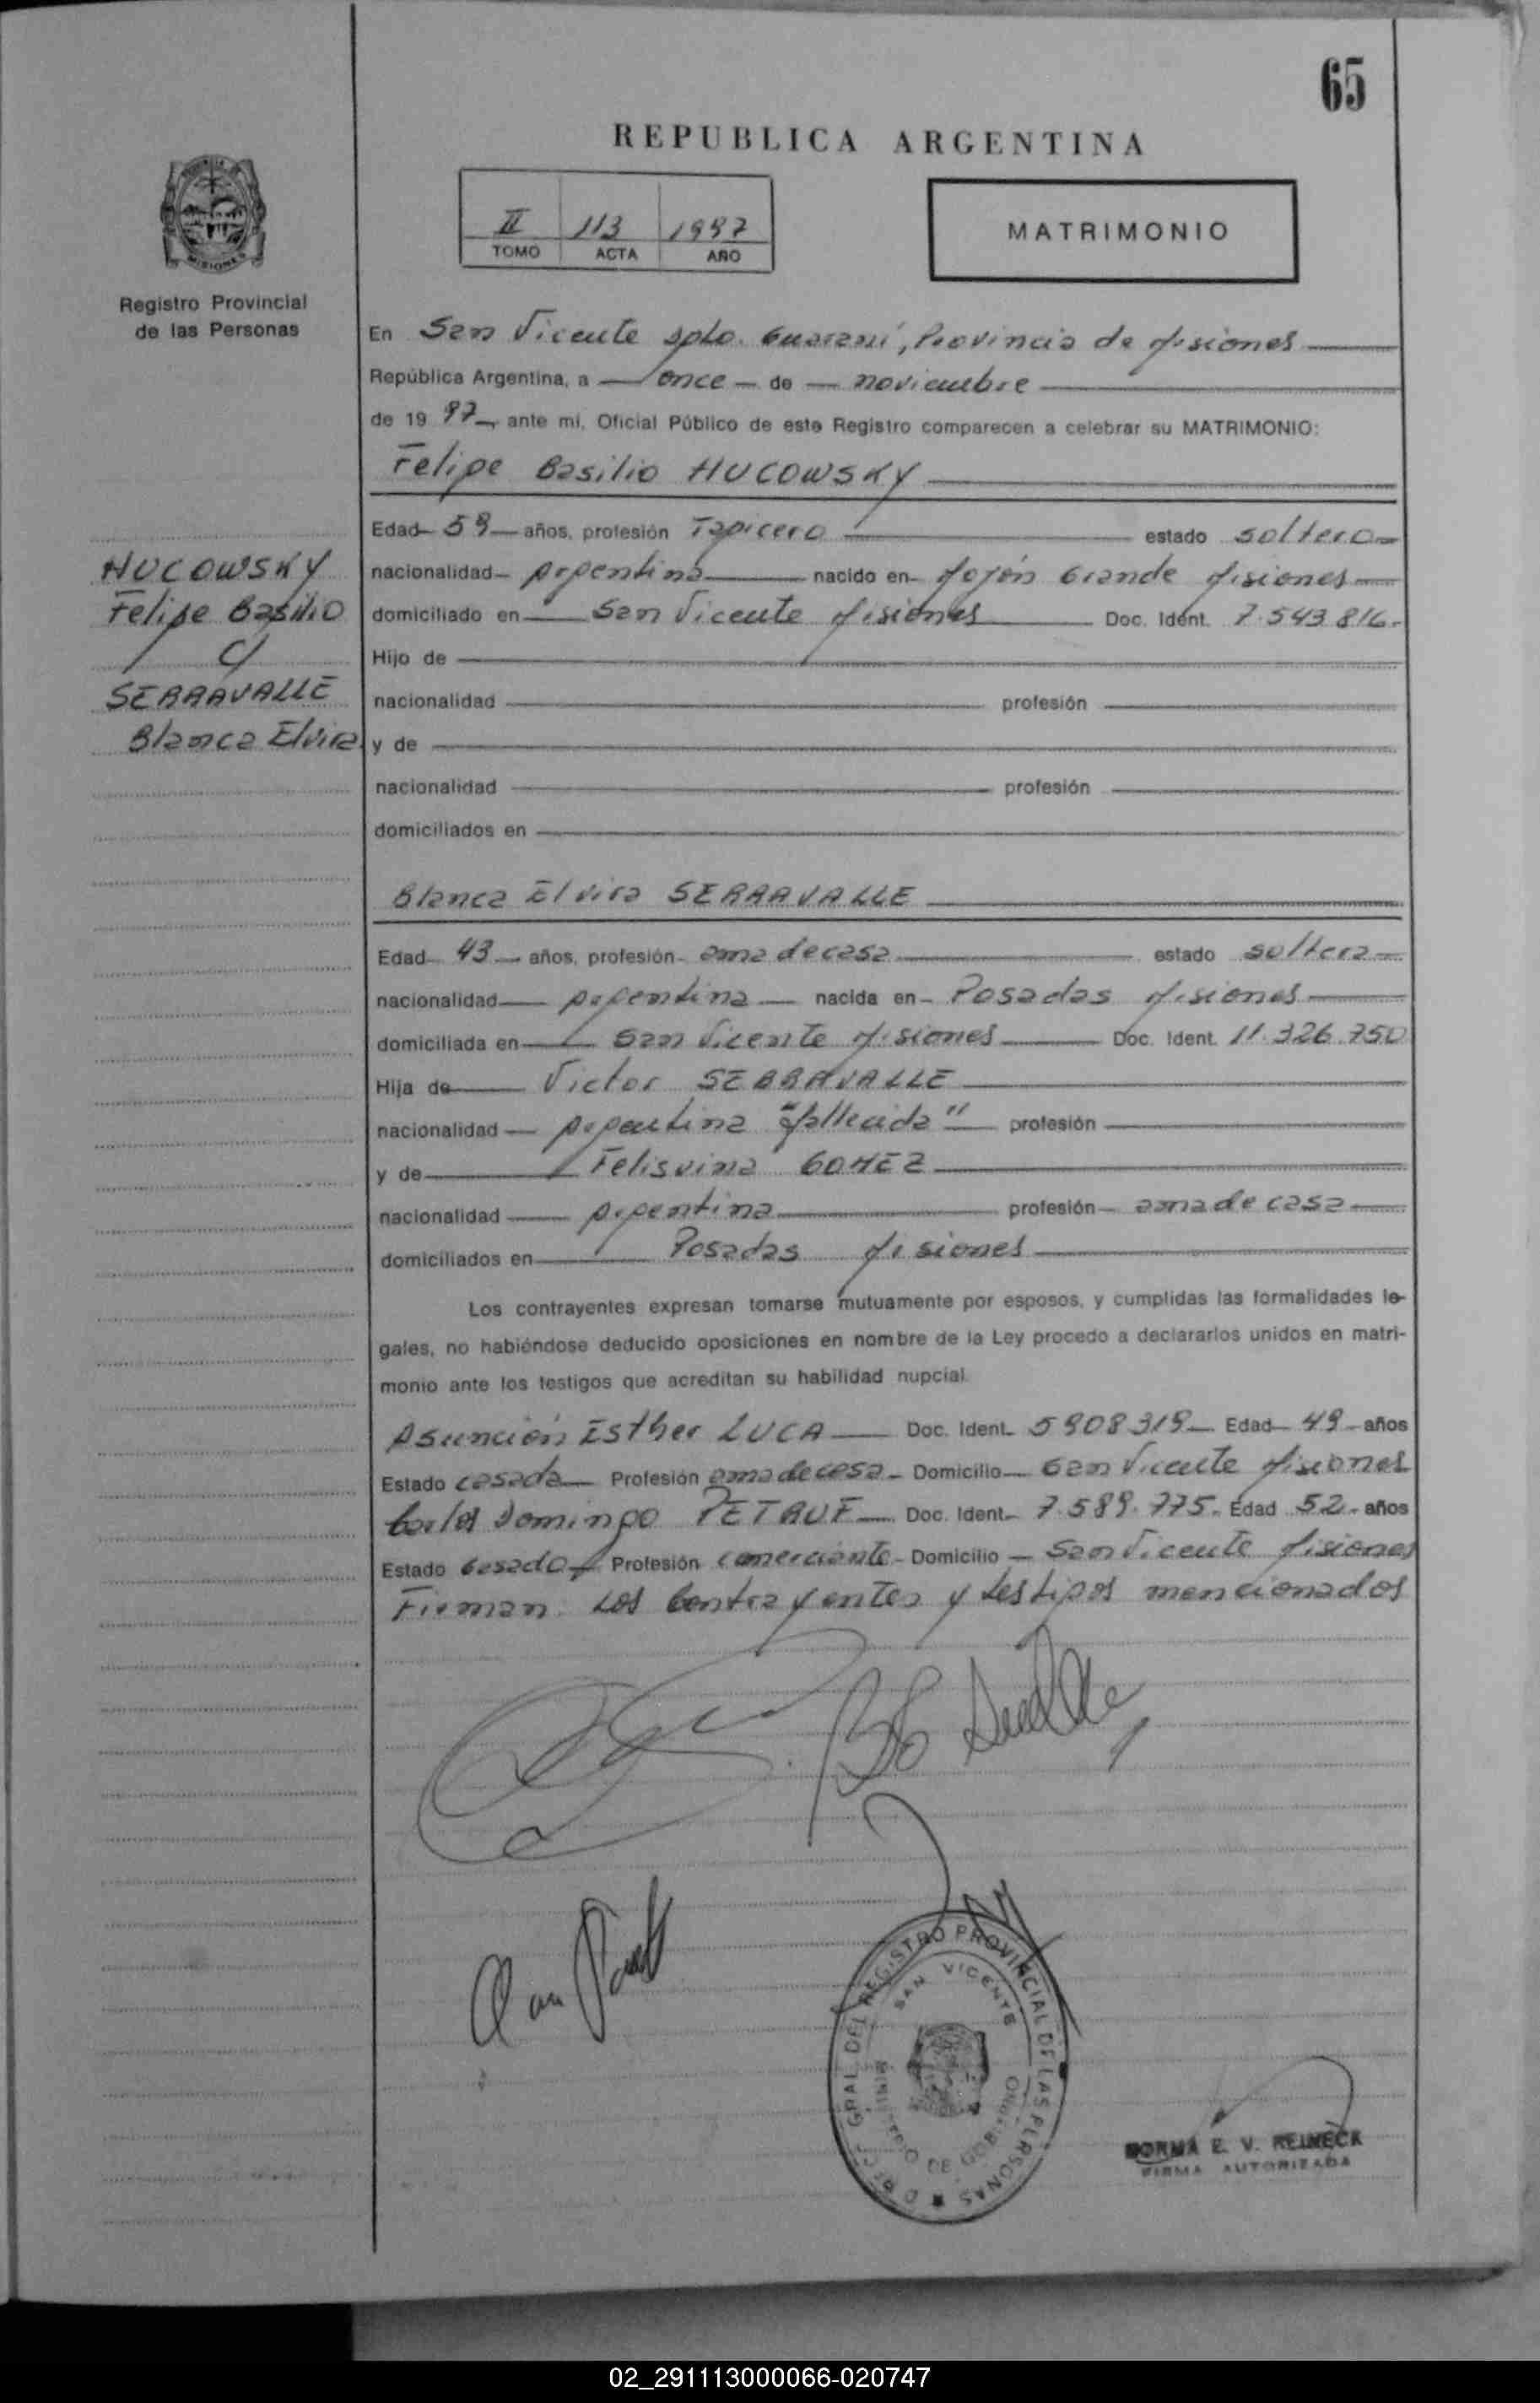 65
REPUBLICA ARGENTINA
II 113 1997
TOMO ACTA AÑO
MATRIMONIO
MISIONES
Registro Provincial
de las Personas
HUCOWSKY
Felipe Basilio
c/
SERRAVALLE
Blanca Elvira
En San Vicente Dpto. Guaraní, Provincia de Misiones
República Argentina, a once de noviembre
de 19 97 ante mi, Oficial Público de este Registro comparecen a celebrar su MATRIMONIO:
Felipe Basilio HUCOWSKY
Edad 59 años, profesión Tapicero estado soltero
nacionalidad Argentina nacido en Mojón Grande Misiones
domiciliado en San Vicente Misiones Doc. Ident. 7.543.816.-
Hijo de
nacionalidad profesión
y de
nacionalidad profesión
domiciliados en
Blanca Elvira SERRAVALLE
Edad 43 años, profesión ama de casa estado soltera
nacionalidad Argentina nacida en Posadas Misiones
domiciliada en San Vicente Misiones Doc. Ident. 11.326.750
Hija de Victor SERRAVALLE
nacionalidad Argentina "fallecido" profesión
y de Felisvina GOMEZ
nacionalidad Argentina profesión ama de casa
domiciliados en Posadas Misiones
Los contrayentes expresan tomarse mutuamente por esposos, y cumplidas las formalidades le-
gales, no habiéndose deducido oposiciones en nombre de la Ley procedo a declararlos unidos en matri-
monio ante los testigos que acreditan su habilidad nupcial.
Asunción Esther LUCA Doc. Ident. 5908319 Edad 49 años
Estado casada Profesión ama de casa Domicilio San Vicente Misiones
Carlos Domingo Doc. Ident. 7.589.775. Edad 52 años
Estado Casado Profesión comerciante Domicilio San Vicente Misiones
Firman Los Contrayentes y testigos mencionados
REGISTRO PROVINCIAL DE LAS PERSONAS
SAN VICENTE
MINISTERIO DE GOBIERNO
NORMA E. V. REINECK
FIRMA AUTORIZADA
02_291113000066-020747